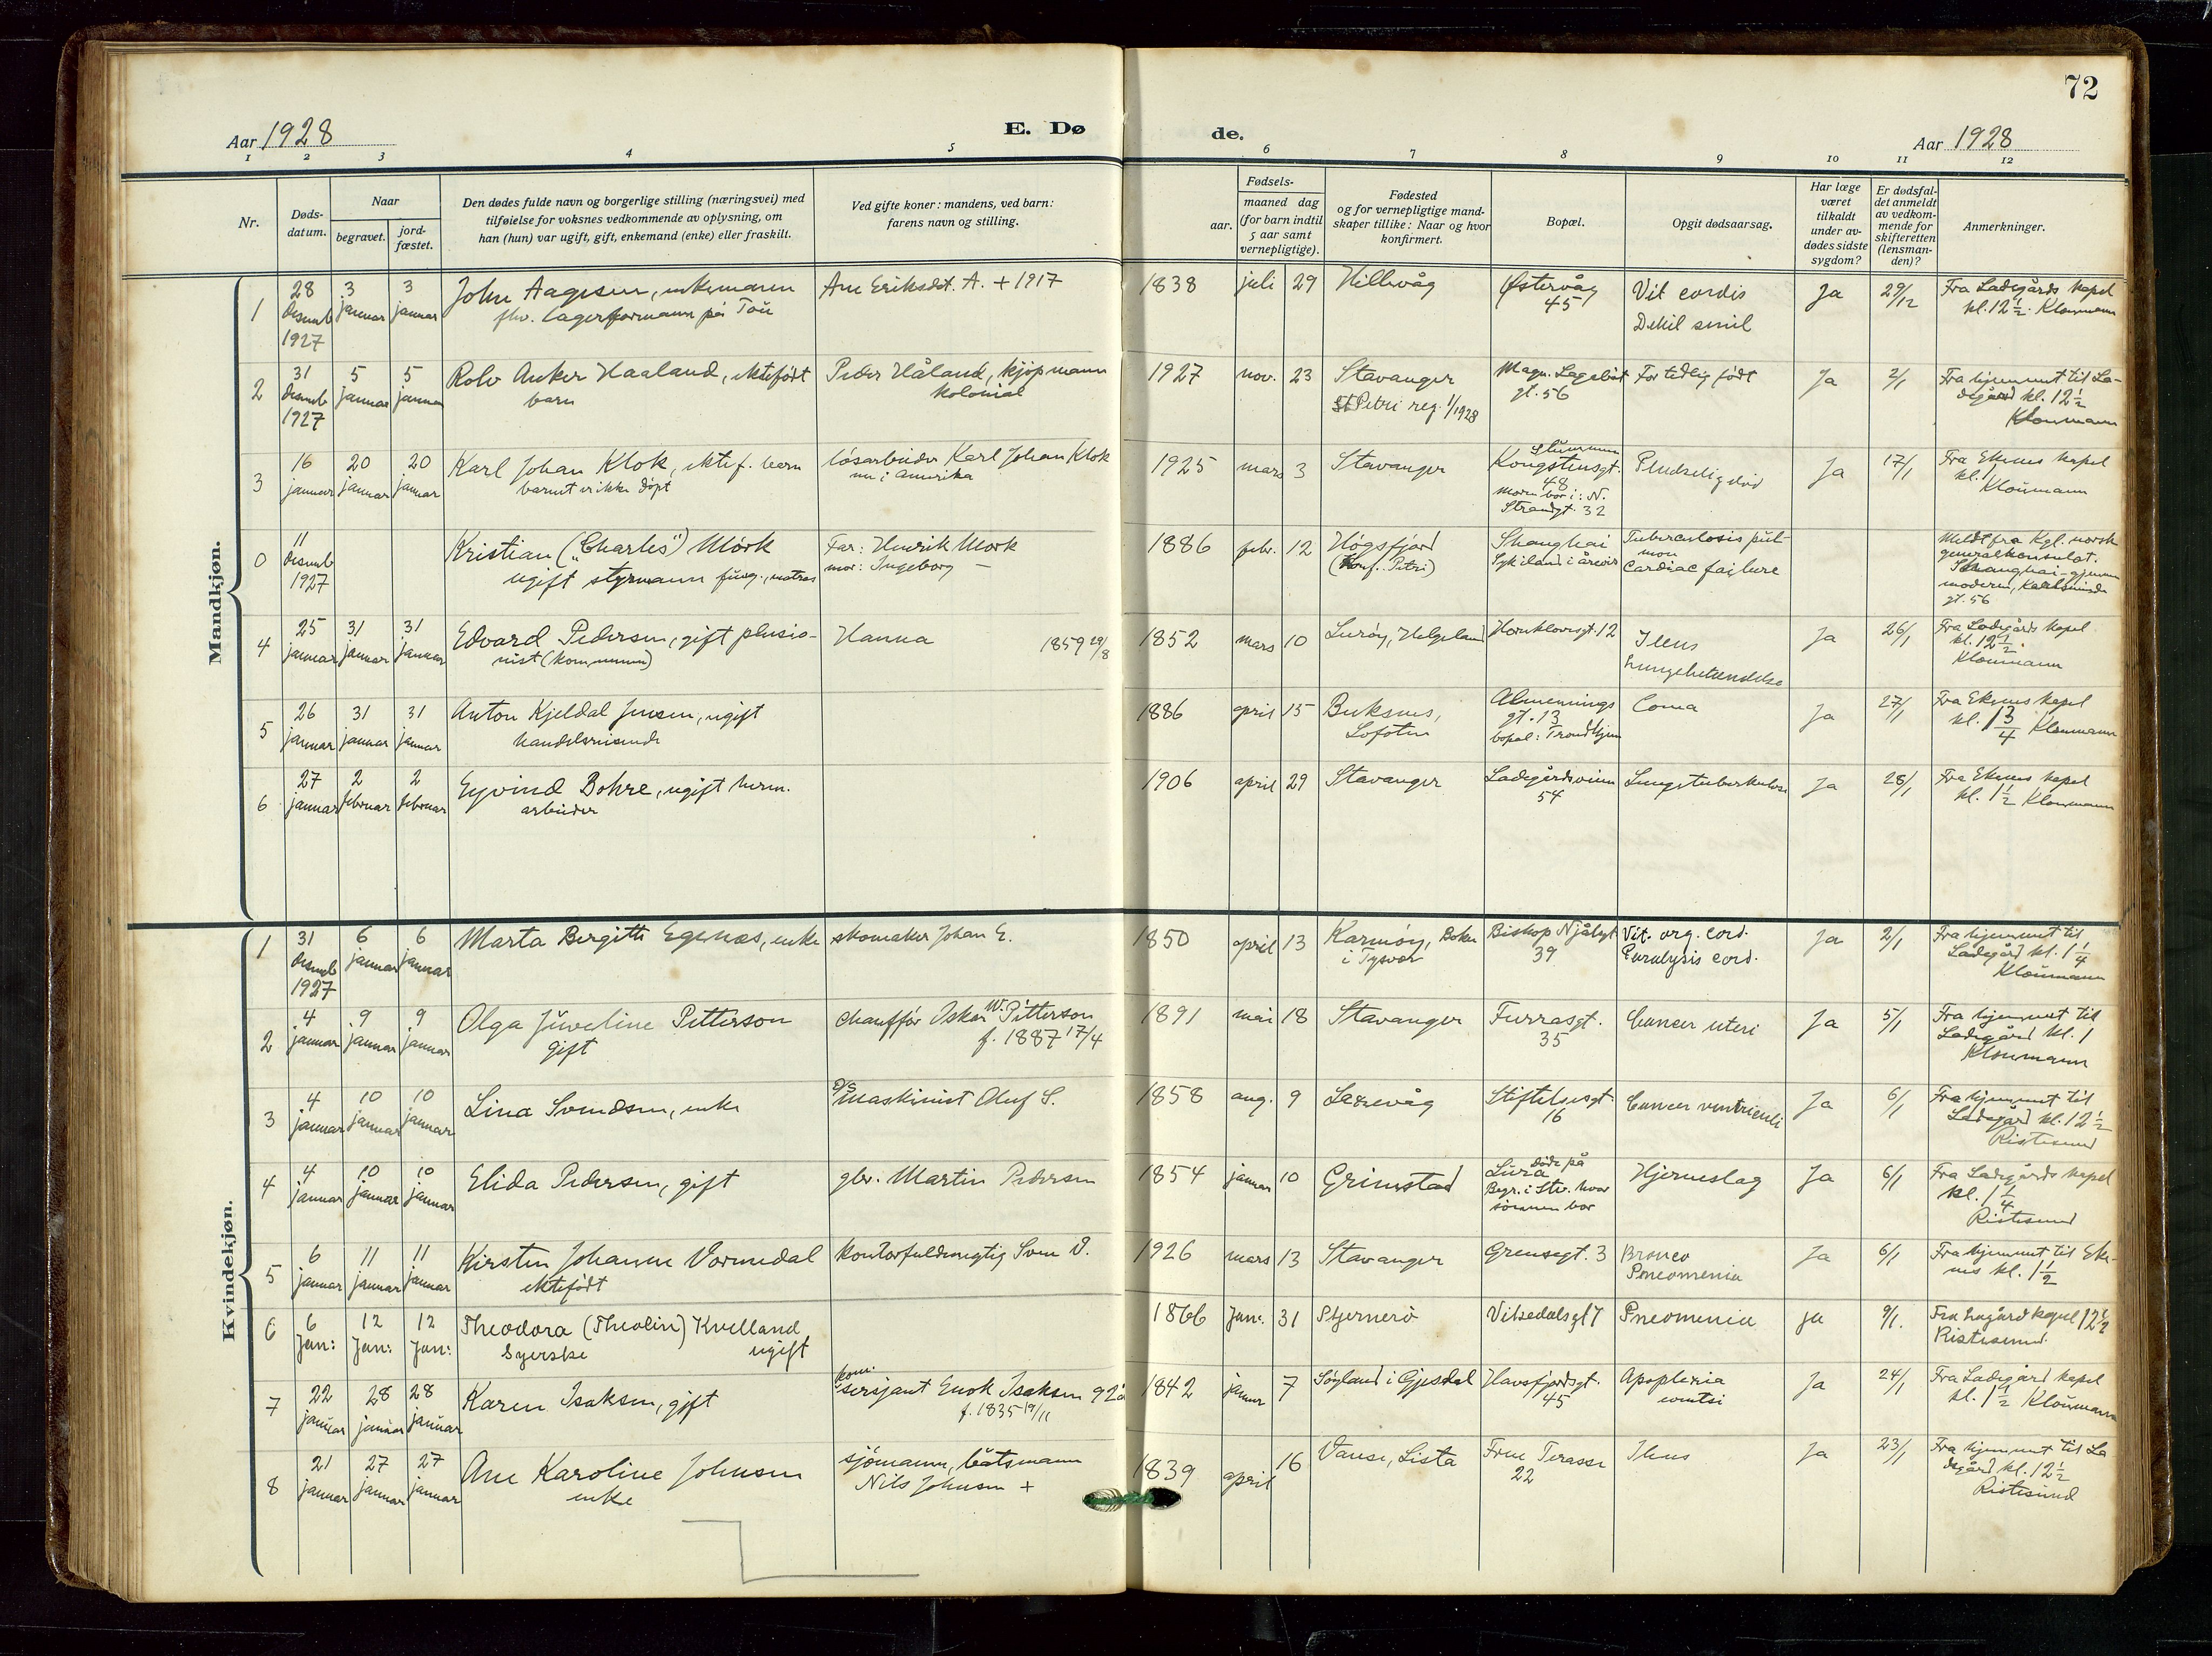 72
Aar 1928
E. Dø
de.
Aar 1928
1 2 3 4 5 6 7 8 9 10 11 12
Nr.
Døds-
datum.
Naar
begravet.
jord-
fæstet.
Den dødes fulde navn og borgerlige stilling (næringsvei) med
tilføielse for voksnes vedkommende av oplysning, om
han (hun) var ugift, gift, enkemand (enke) eller fraskilt.
Ved gifte koner: mandens, ved barn:
farens navn og stilling.
Fødsels-
aar.
maaned dag
(for barn indtil
5 aar samt
vernepligtige).
Fødested
og for vernepligtige mand-
skaper tillike: Naar og hvor
konfirmert.
Bopæl.
Opgit dødsaarsag.
Har læge
været
tilkaldt
under av-
dødes sidste
sygdom?
Er dødsfal-
det anmeldt
av vedkom-
mende for
skifteretten
(lensman-
den)?
Anmerkninger.
Mandkjøn.
1
28
desemb
1927
3
januar
3
januar
John Aagesen, enkemann
fhv. lagerformann på Tou
Ane Eriksdt. A. + 1917
1838 juli 29
Hillevåg
Østervåg
45
Vit cordis
Debil senil
Ja
29/12
Fra Ladegårds kapel
kl. 12 1/2. Kloumann
2
31
desemb
1927
5
januar
5
januar
Rolv Anker Haaland, ektefødt
barn
Peder Håland, kjøpmann
kolonial
1927 nov. 23
Stavanger
St Petri reg. 1/1928
Magn. Lagabøt
gt. 56
For tidlig født
Ja
2/1
Fra hjemmet til La-
degård kl. 12 1/2
Kloumann
3
16
januar
20
januar
20
januar
Karl Johan Klok, ektef. barn
barnet er ikke døpt
løsarbeider Karl Johan Klok
nu i Amerika
1925 mars 3
Stavanger
Kongstensgt.
48
moren bor i: N.
Strandgt. 32
Pludselig død
Ja
17/1
Fra Ekenes kapel
kl. 1
Kloumann
0
11
desemb
1927
Kristian ("Charles") Mørk
ugift styrmann fung., matros
Far: Henrik Mørk
mor: Ingeborg —
1886 febr. 12
Høgsfjord
(Konf. Petri)
Shanghai
Syk iland i årevis
Tuberculosis pul-
mon
Cardiac failure
Meldt fra Kgl. norsk
generalkonsulat.
Shanghai - gjennem
moderen, Karlsminde
gt. 56
4
25
januar
31
januar
31
januar
Edvard Pedersen, gift pensio-
nist (kommunen)
Hanna 1859 29/8
1852 mars 10
Lurøy, Helgeland
Hornklovesgt. 12
Ileus
Lungebetændelse
Ja
26/1
Fra Ladegårds kapel
kl. 12 1/2
Kloumann
5
26
januar
31
januar
31
januar
Anton Kjeldal Jensen, ugift
handelsreisende
1886 april 15
Buksnes,
Lofoten
Almennings
gt. 13
bopæl: Trondhjem
Coma
Ja
27/1
Fra Ekenes kapel
kl. 1 3/4 Kloumann
6
27
januar
2
februar
2
februar
Eyvind Bohre, ugift herm.
arbeider
1906 april 29
Stavanger
Ladegårdsveien
54
Lungetuberkulose
Ja
28/1
Fra Ekenes kapel
kl. 1 1/2 Kloumann
Kvindekjøn.
1
31
desemb
1927
6
januar
6
januar
Marta Bergitte Egenæs, enke
skomaker Johan E.
1850 april 13
Karmøy, Bokn
i Tysvær
Biskop Njålsgt
39
Vit. org. cord.
Paralysis cord.
Ja
2/1
Fra hjemmet til
Ladegård kl. 1 1/4
Kloumann
2
4
januar
9
januar
9
januar
Olga Juveline Petterson
gift
chauffør Oskar W. Petterson
f. 1887 17/4
1891 mai 18
Stavanger
Furrasgt.
35
Cancer uteri
Ja
5/1
Fra hjemmet til
Ladegård kl. 1
Kloumann
3
4
januar
10
januar
10
januar
Lina Svendsen, enke
D/S
maskinist Oluf S.
1858 aug. 9
Laxevåg
Stiftelsesgt.
16
Cancer ventriculi
Ja
6/1
Fra hjemmet til
Ladegård kl. 12 1/2
Ristesund
4
4
januar
10
januar
10
januar
Elida Pedersen, gift
gbr. Martin Pedersen
1854 januar 10
Grimstad
døde på
Lura
Begr. i Stv. hvor
sønnen bor
Hjerneslag
Ja
6/1
Fra Ladegårds kapel
kl. 1 1/4
Ristesund
5
6
januar
11
januar
11
januar
Kirsten Johanne Vormedal
ektefødt
kontorfuldmegtig Sven V.
1926 mars 13
Stavanger
Grensegt. 3
Bronco
Pneomenia
Ja
6/1
Fra hjemmet til Eke-
nes kl. 1 1/2
6
6
Jan:
12
Jan:
12
Jan:
Theodora (Theolin) Kvelland
Syerske ugift
1866 Jan: 31
Stjernerø
Vitsedalsgt 7
Pneomenia
ja
9/1.
Fra Lagård kapel 12 1/2
Ristesund.
7
22
januar
28
januar
28
januar
Karen Isaksen, gift
kom.
sersjant Enok Isaksen 92 år
f. 1835 19/11
1842 januar 7
Søyland i Gjesdal
Havsfjordsgt.
45
Apoplexia
Ja
24/1
Fra Ladegård kapel
kl. 1 1/2 Kloumann
8
21
januar
27
januar
27
januar
Ane Karoline Johnsen
enke
sjømann, båtsmann
Nils Johnsen +
1839 april 16
Vanse, Lista
Frue Terasse
22
Ileus
Ja
23/1
Fra hjemmet til La
degård kl. 12 1/2
Ristesund